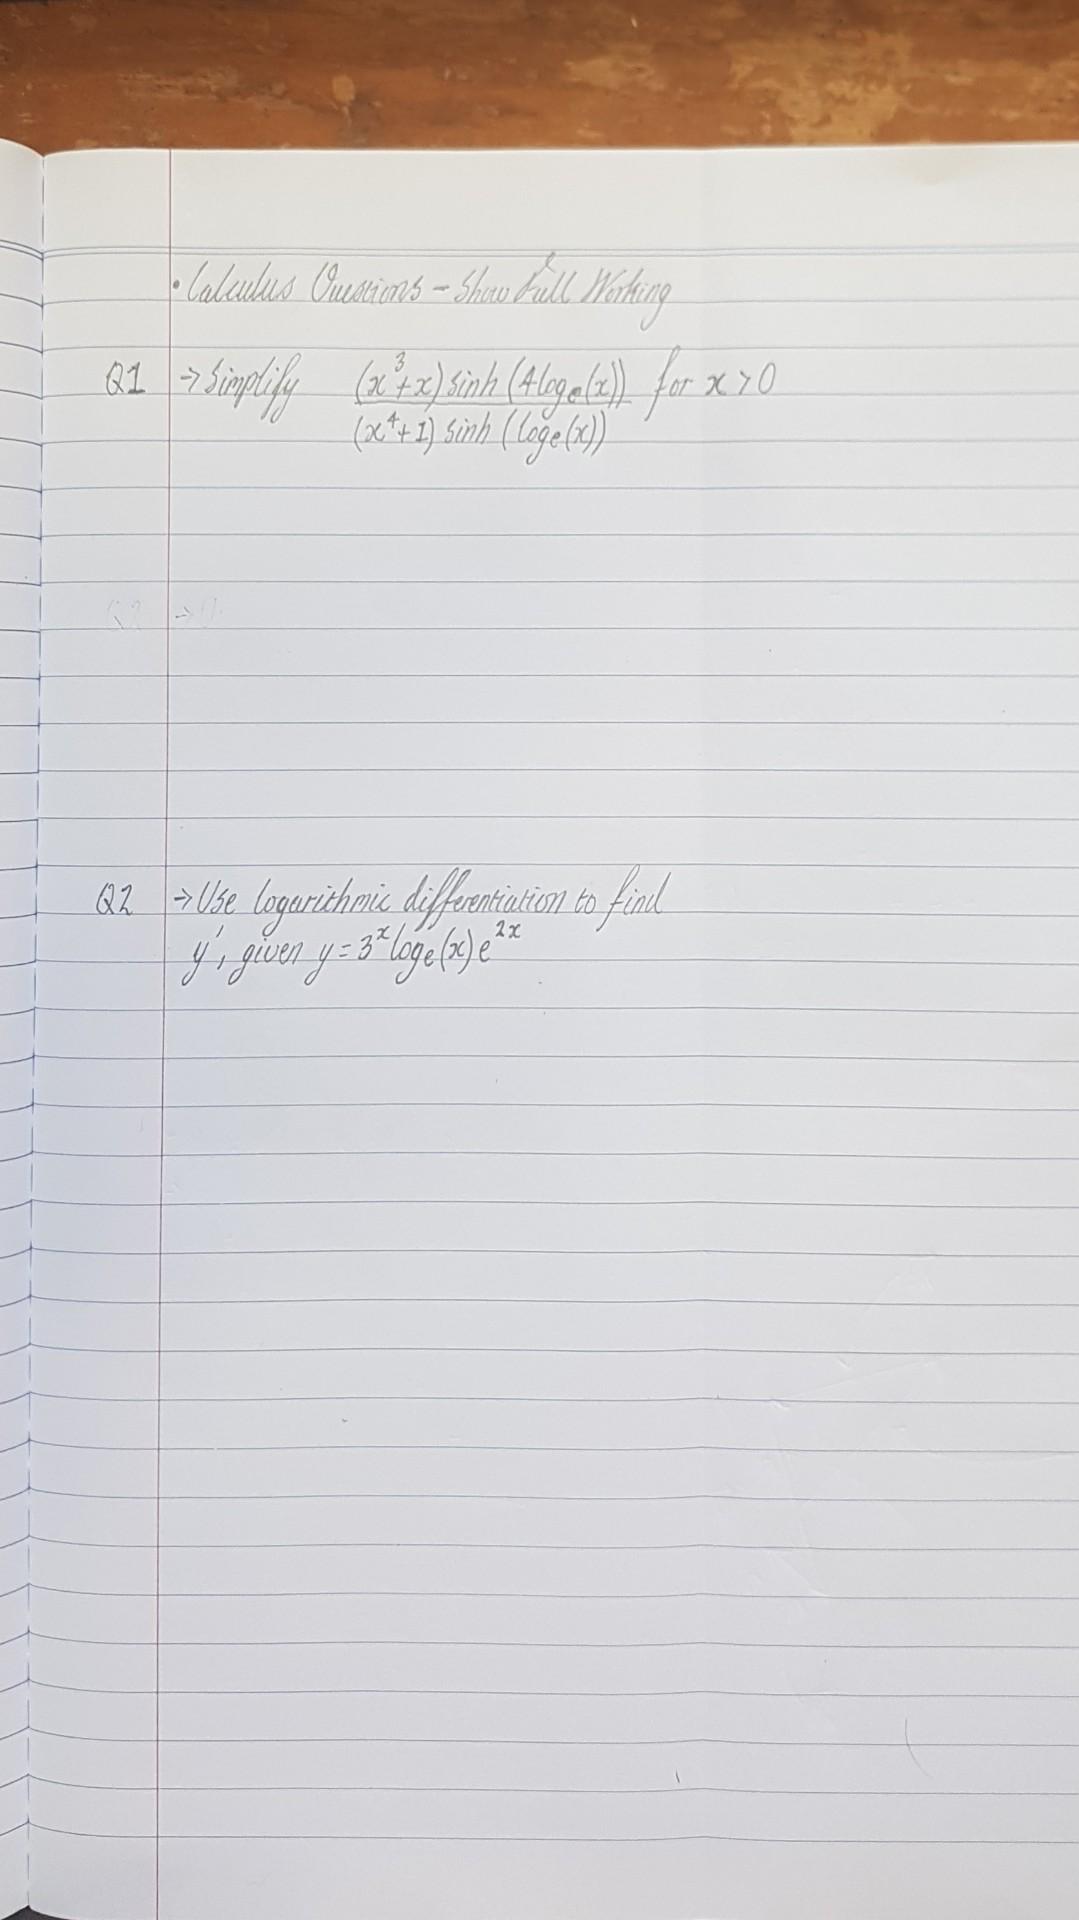 • Calculus Questions – Show Full Working
Q1 → Simplify (x³+x) sinh (4logₑ(x)) for x > 0
(x⁴+1) sinh (logₑ(x))
Q2 → Use logarithmic differentiation to find
y', given y = 3ˣ logₑ(x) e²ˣ